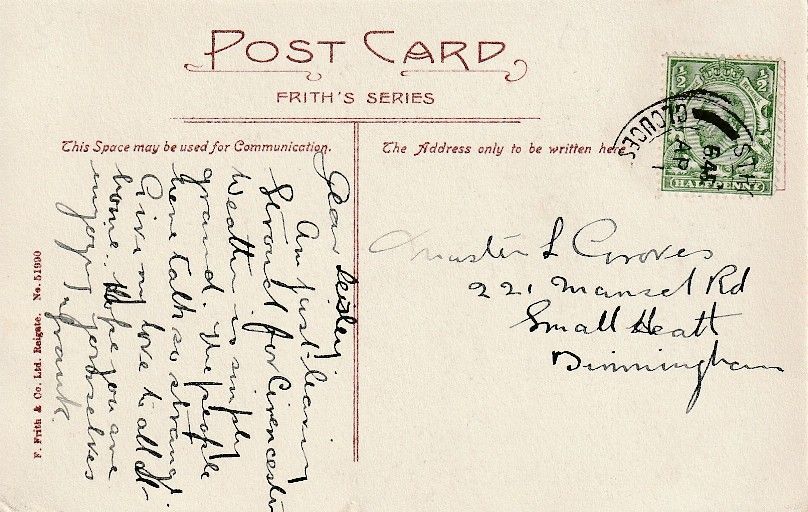 POST CARD
FRITH'S SERIES
This Space may be used for Communication.
The Address only to be written here
½ ½
HALFPENNY
GLOUCES
AP
Dear Lesley
Am just leaving
Stroud for Cirencester
Weather is simply
grand. The people
here talk so strang
Give my love to all at
home. Hope you are
enjoying yourselves
Frank.
Master L Groves
221 Mansel Rd
Small Heath
Birmingham
F. Frith & Co. Ltd. Reigate. No. 51990